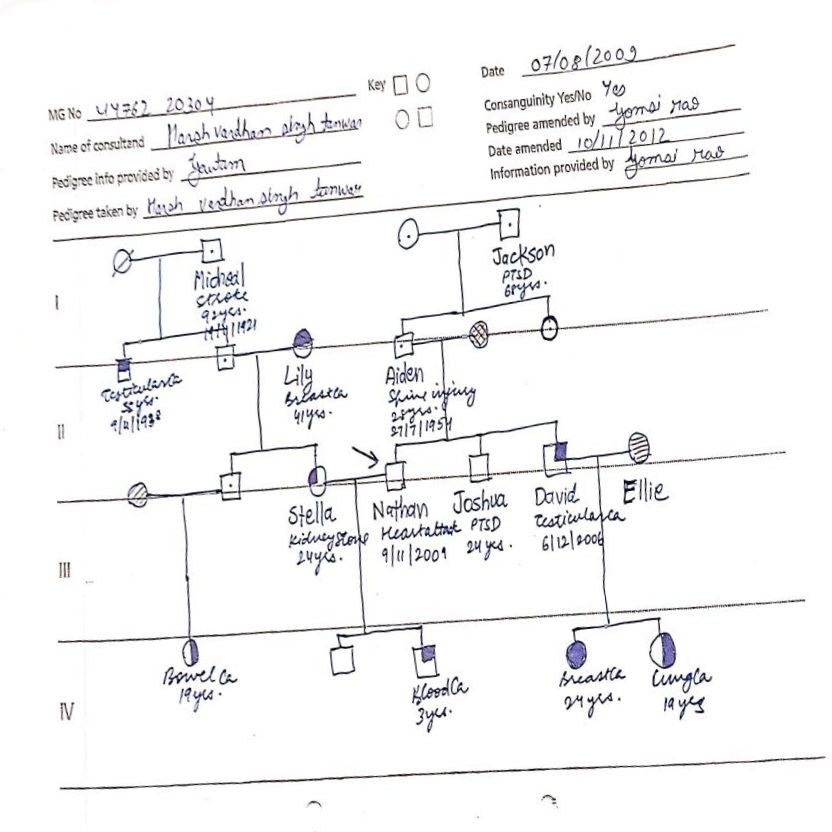 MG No 44762 20304
Name of consultand Harsh vardhan singh tanwar
Pedigree info provided by Gautam
Pedigree taken by Harsh vardhan singh tanwar
Key
Date 07/08/2009
Consanguinity Yes/No Yes
Pedigree amended by Yomsi rao
Date amended 10/11/2012
Information provided by Yomsi rao
I
Micheal
Stroke
92yrs.
Jackson
PTSD
68yrs.
II
TesticularCa
55yrs.
Lily
BreastCa
41yrs.
Aiden
Spine injury
28yrs.
27/7/1954
III
Stella
Kidney Stone
24yrs.
Nathan
Heartattack
9/11/2009
Joshua
PTSD
24 yrs.
David
TesticularCa
6/12/2006
Ellie
IV
Bowel Ca
19yrs.
BloodCa
3yrs.
BreastCa
24yrs.
LungCa
19yrs